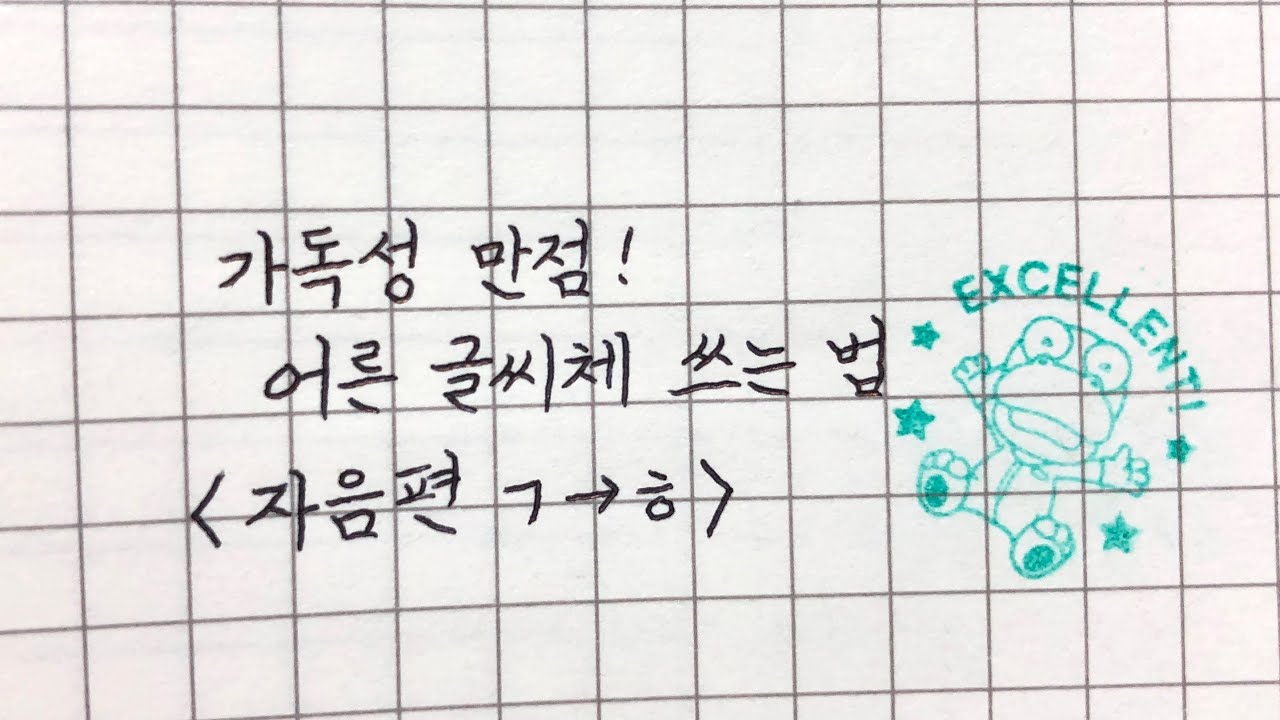 가독성 만점!
어른 글씨체 쓰는 법
<자음편 ㄱ→ㅎ>
EXCELLENT!